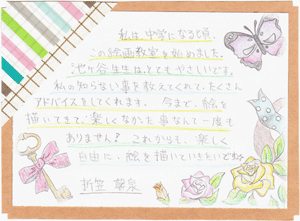 私は、中学になる頃、
この絵画教室を始めました。
池ヶ谷先生は、とてもやさしいです。
私の知らない事を教えてくれて、たくさん
アドバイスをしてくれます。今まで、絵を
描いてきて、楽しくなかった事なんて一度も
ありません!これからも、楽しく
自由に、絵を描いていきたいです
折笠